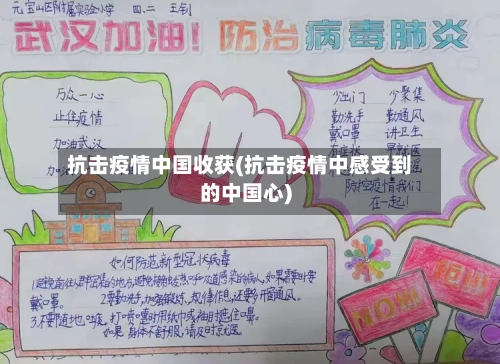 元宝山区附属实验小学 四.二 王钊
武汉加油！防治病毒肺炎
万众一心
止住疫情
加油武汉
少出门 少聚集
勤洗手 勤通风
戴口罩 讲卫生
防控疫情我们
在一起！
抗击疫情中国收获(抗击疫情中感受到
的中国心)
如何防范新型冠状病毒
1.避免前往人群密集的地方,避免接触发热呼吸道感染的病人,如果需要时要
戴口罩。 2.要勤洗手,加强锻炼、规律作息,还要多开窗通风。
3.不要随地吐痰,打喷嚏时用纸巾或袖肘遮住口鼻。
如果身体不舒服,请及时就医。